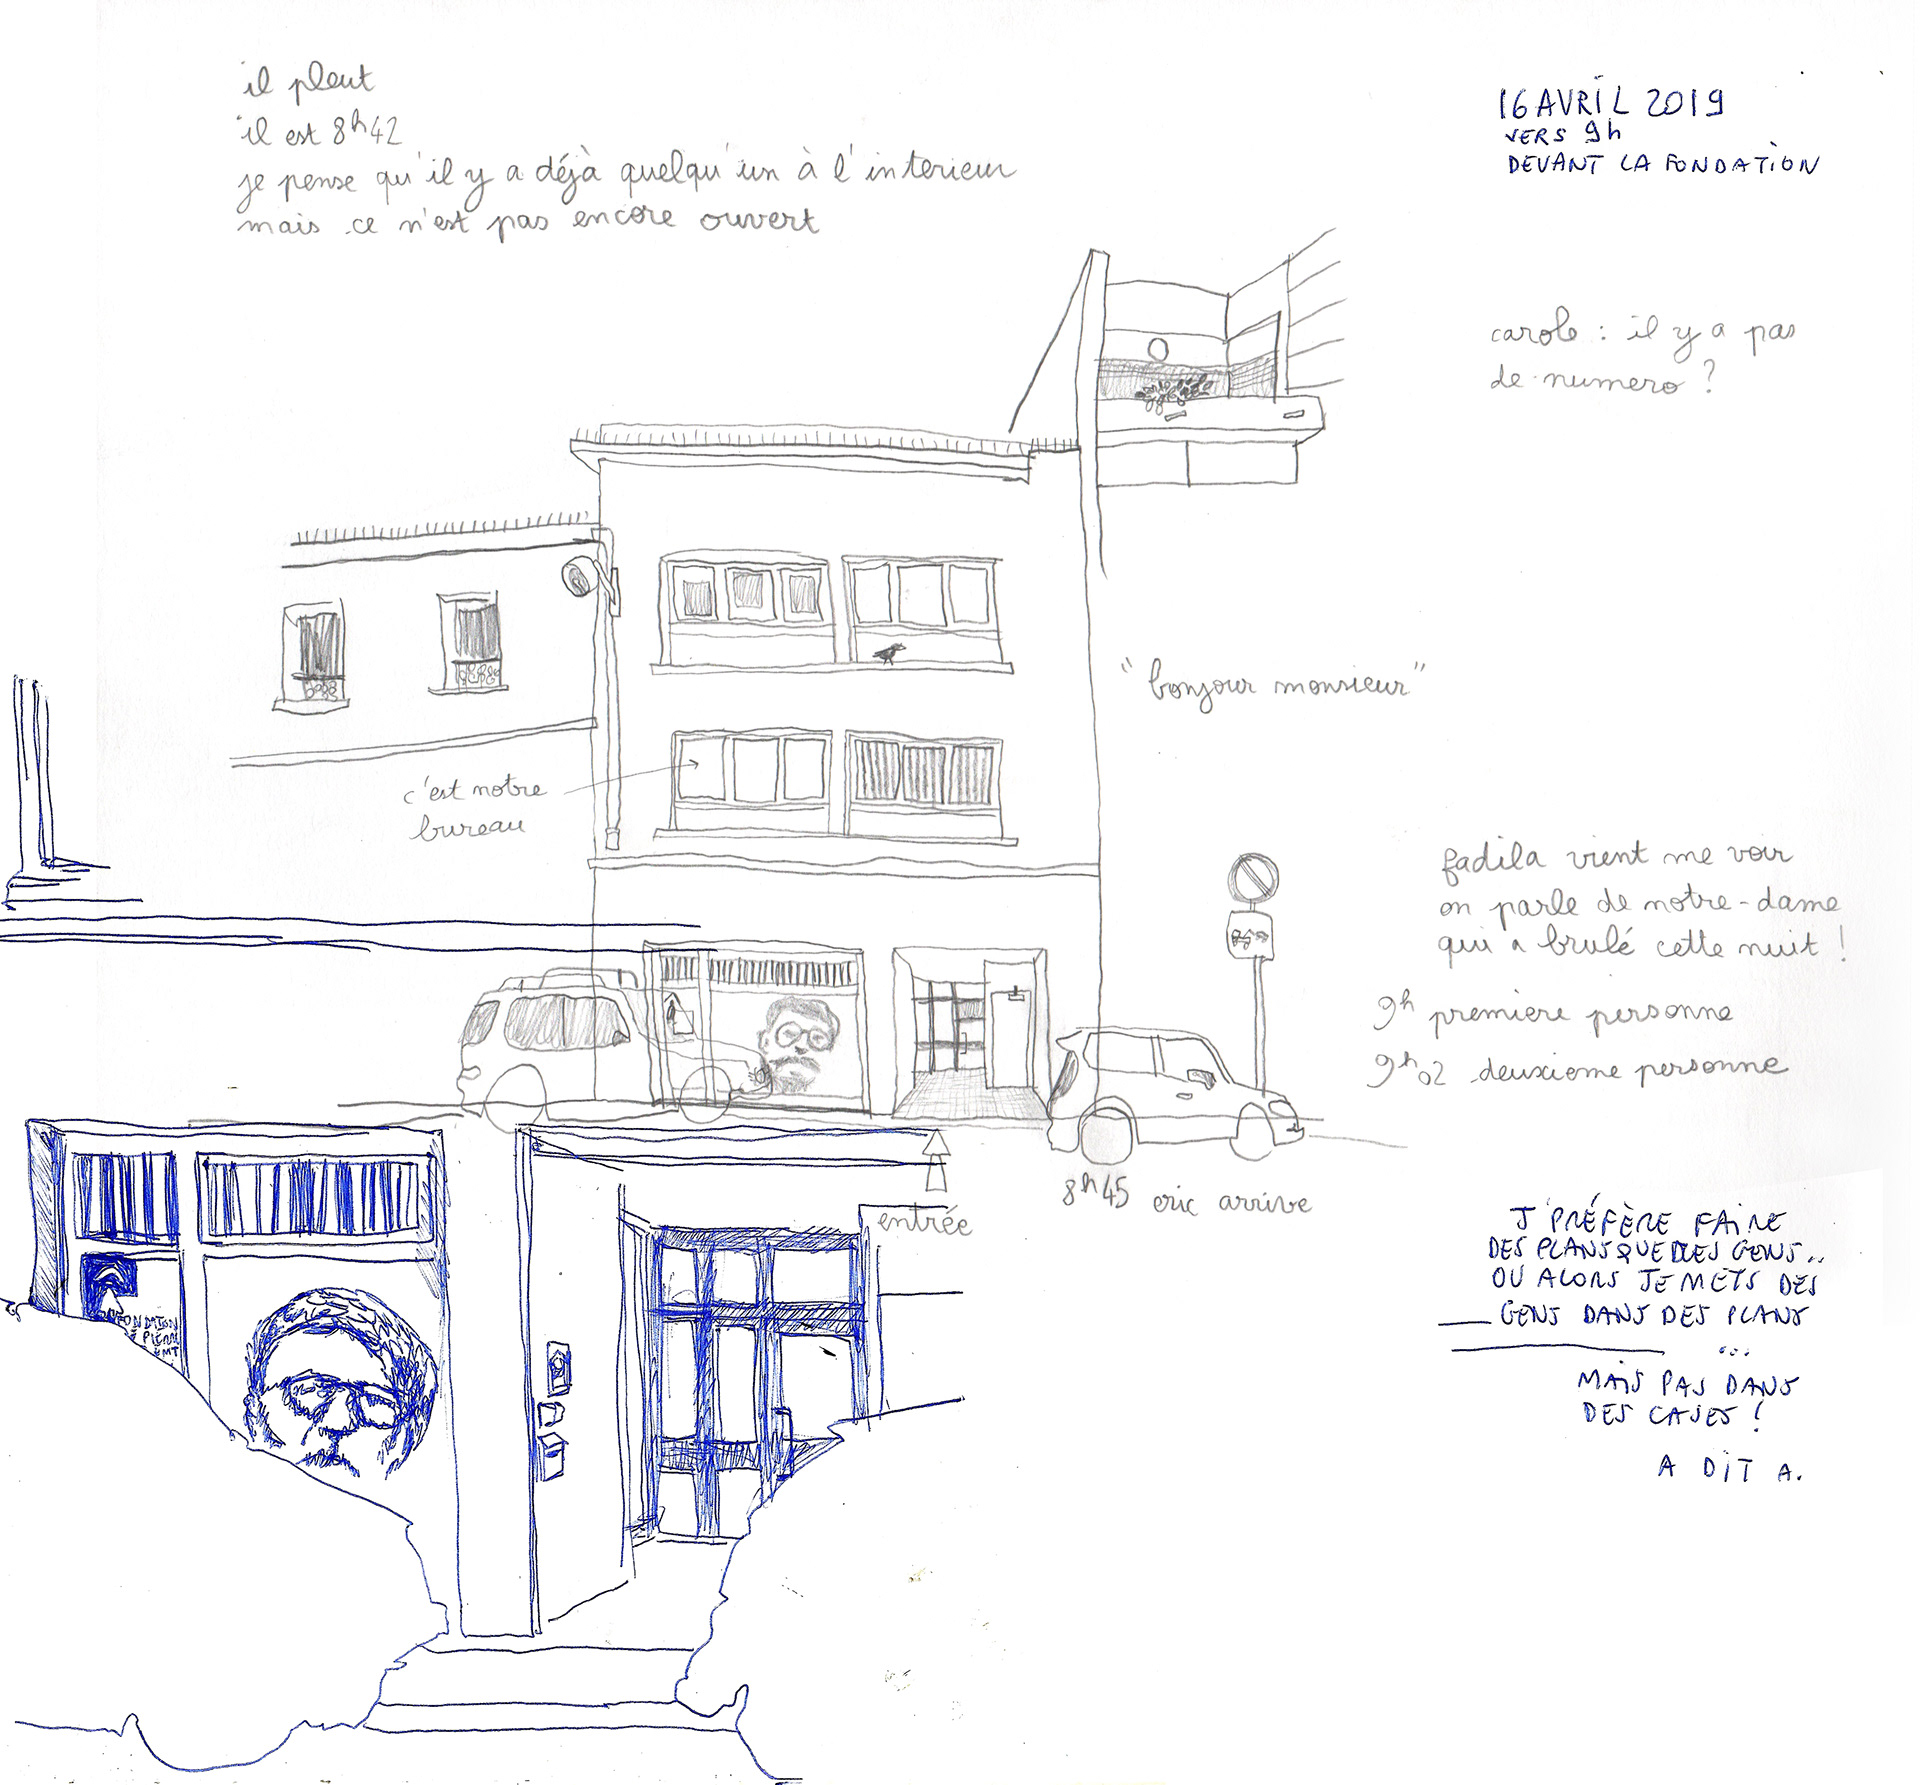 il pleut
il est 8h42
je pense qu'il y a déjà quelqu'un à l'interieur
mais ce n'est pas encore ouvert
16 AVRIL 2019
VERS 9h
DEVANT LA FONDATION
carole : il y a pas
de numero ?
"bonjour monsieur"
c'est notre
bureau
fadila vient me voir
on parle de notre-dame
qui a brulé cette nuit !
9h premiere personne
9h02 deuxieme personne
8h45 eric arrive
entrée
FONDATION
PIERRE
J'PRÉFÈRE FAIRE
DES PLANS QUE DES GENS..
OU ALORS JE METS DES
GENS DANS DES PLANS
...
MAIS PAS DANS
DES CASES !
A DIT A.